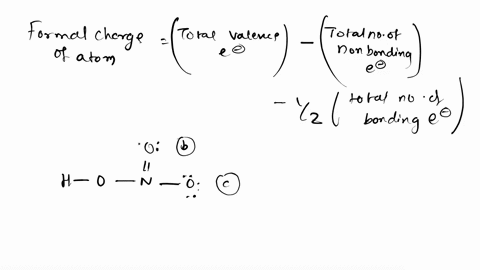 Formal charge of atom = (Total valence e⊖) − (Total no. of non bonding e⊖)
− 1/2 (total no. of bonding e⊖)
:O: (b)
||
H — O — N — O: (c)